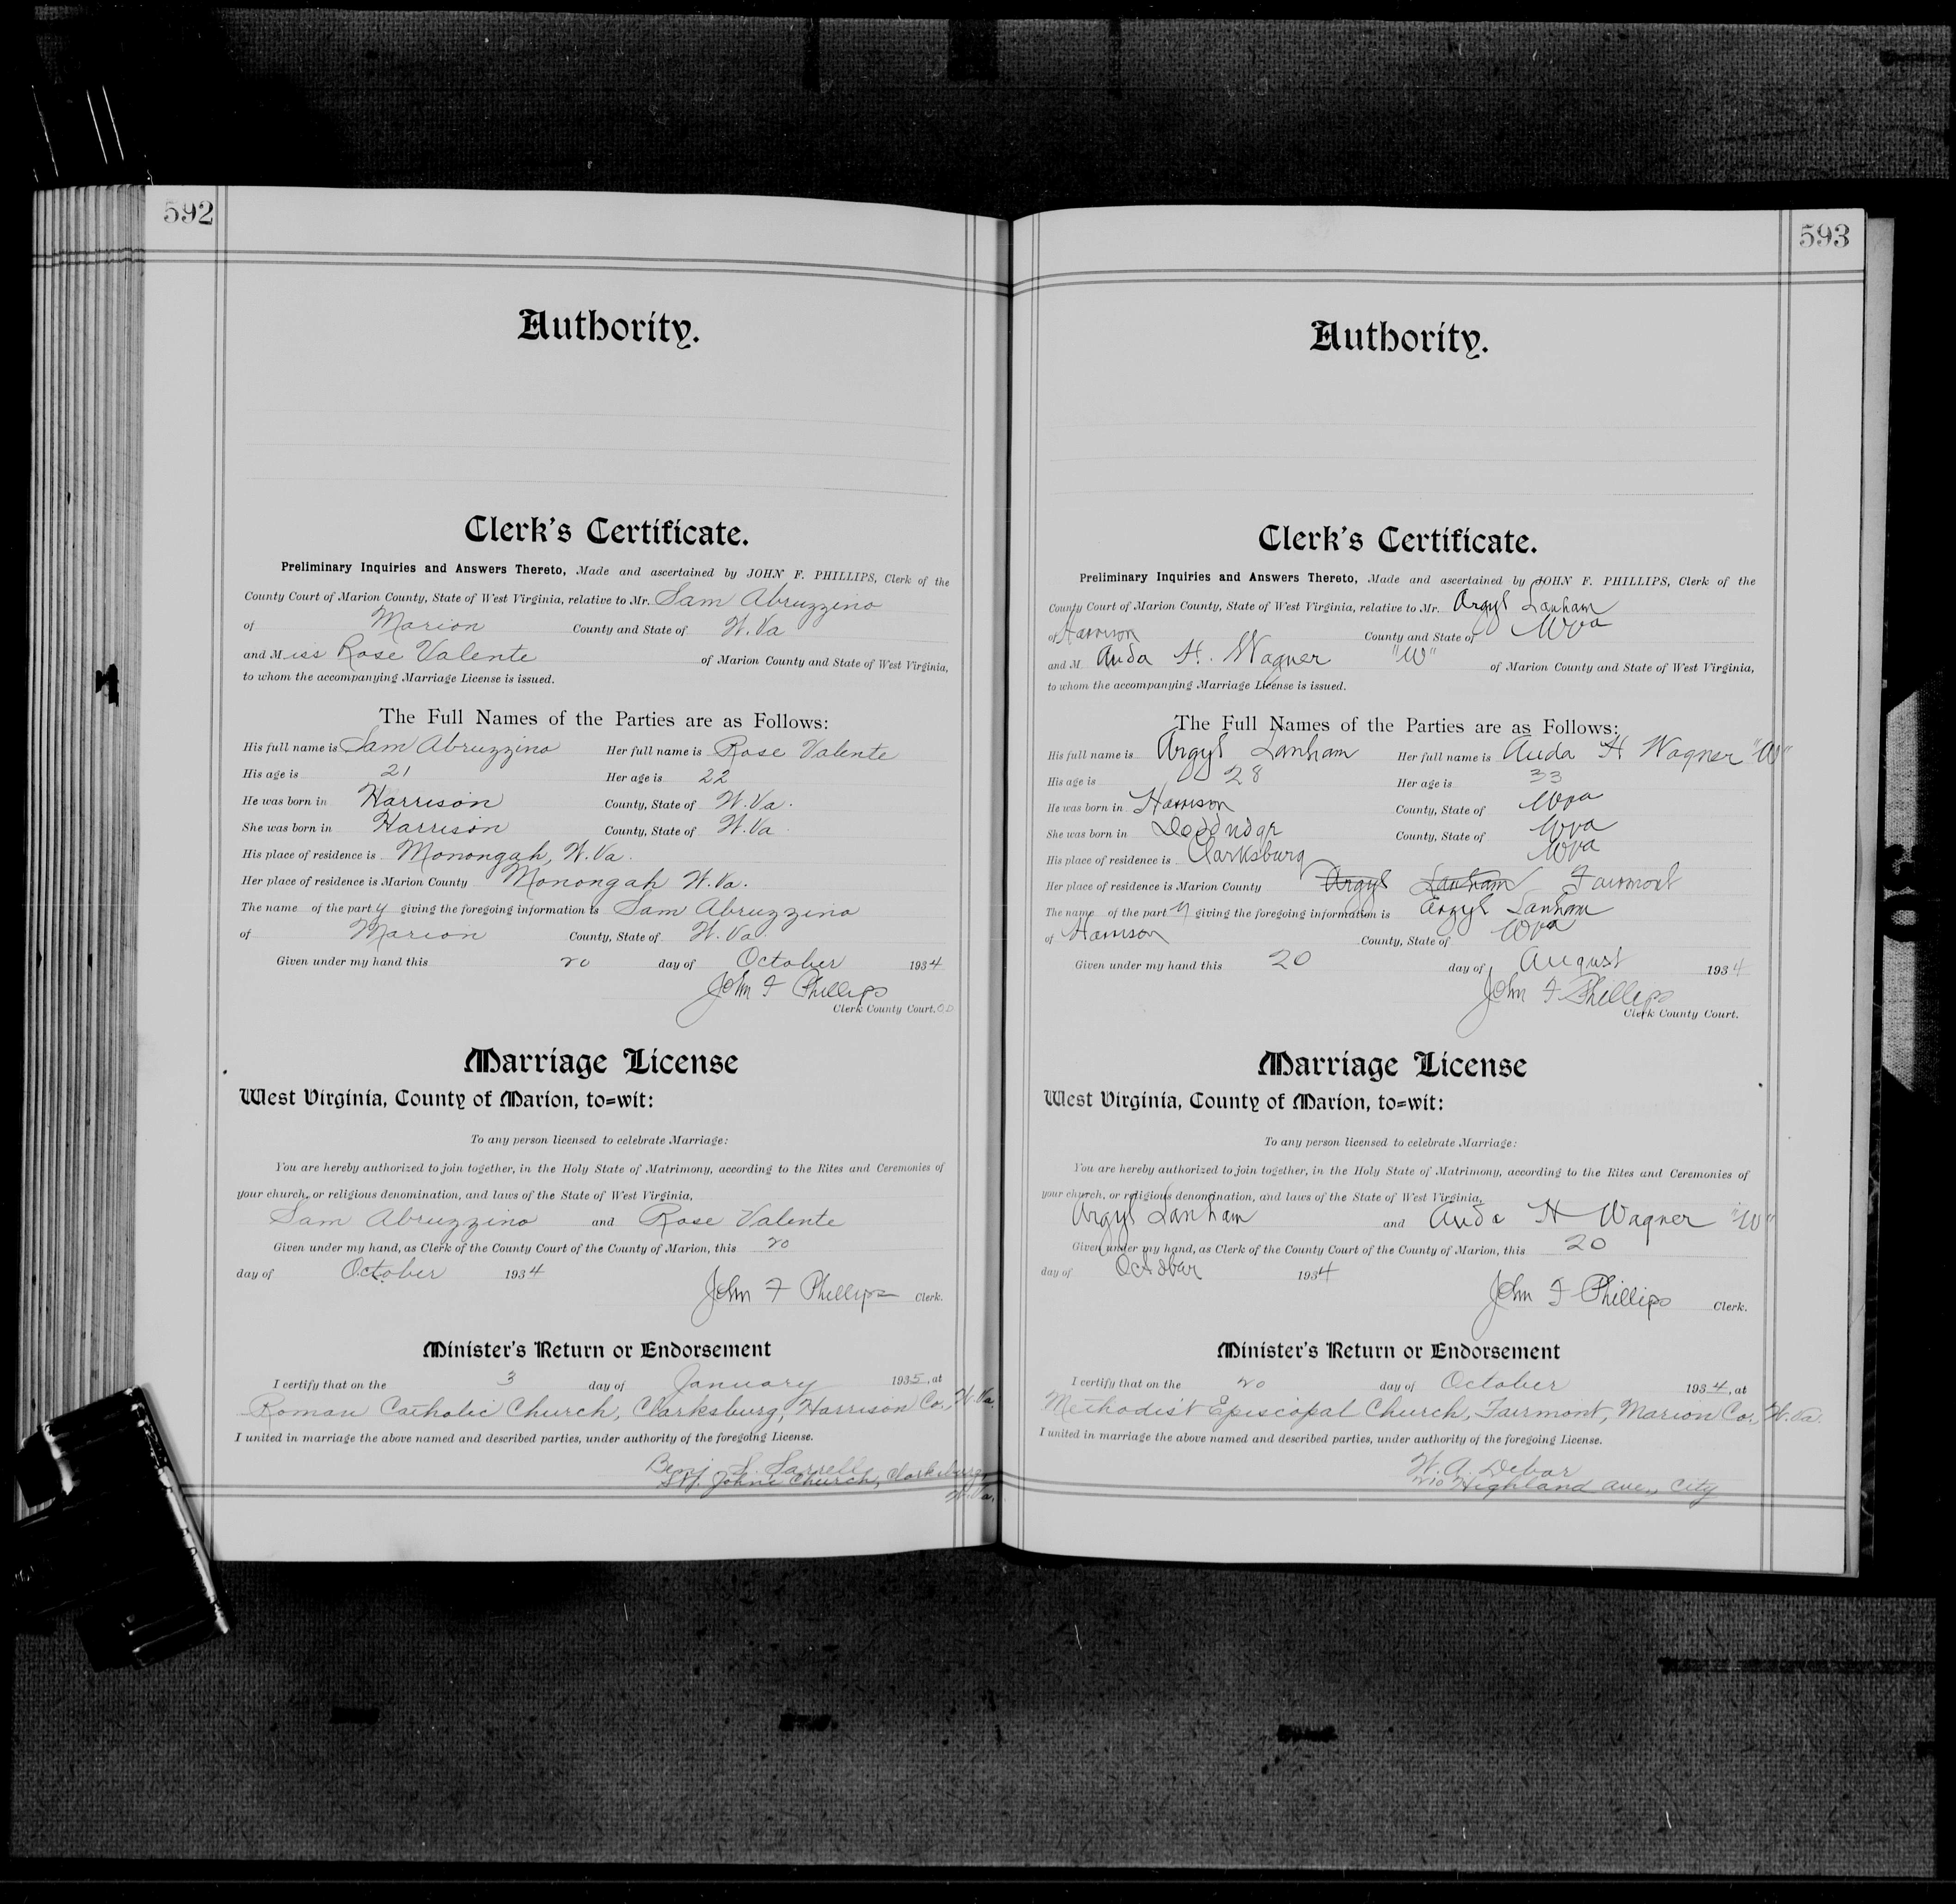 592
Authority.
Clerk's Certificate.
Preliminary Inquiries and Answers Thereto, Made and ascertained by JOHN F. PHILLIPS, Clerk of the
County Court of Marion County, State of West Virginia, relative to Mr. Sam Abruzzino
of Marion County and State of W. Va
and Miss Rose Valente of Marion County and State of West Virginia,
to whom the accompanying Marriage License is issued.
The Full Names of the Parties are as Follows:
His full name is Sam Abruzzino Her full name is Rose Valente
His age is 21 Her age is 22
He was born in Harrison County, State of W. Va.
She was born in Harrison County, State of W. Va.
His place of residence is Monongah, W. Va.
Her place of residence is Marion County Monongah W. Va.
The name of the party giving the foregoing information is Sam Abruzzino
of Marion County, State of W. Va.
Given under my hand this 20 day of October 1934
John F Phillips
Clerk County Court. O.D.
Marriage License
West Virginia, County of Marion, to=wit:
To any person licensed to celebrate Marriage:
You are hereby authorized to join together, in the Holy State of Matrimony, according to the Rites and Ceremonies of
your church, or religious denomination, and laws of the State of West Virginia,
Sam Abruzzino and Rose Valente
Given under my hand, as Clerk of the County Court of the County of Marion, this 20
day of October 1934
John F Phillips Clerk.
Minister's Return or Endorsement
I certify that on the 3 day of January 1935, at
Roman Catholic Church, Clarksburg, Harrison Co., W. Va.
I united in marriage the above named and described parties, under authority of the foregoing License.
Benj. Johns Church, Clarksburg,
W. Va.
593
Authority.
Clerk's Certificate.
Preliminary Inquiries and Answers Thereto, Made and ascertained by JOHN F. PHILLIPS, Clerk of the
County Court of Marion County, State of West Virginia, relative to Mr. Argyl Lanham
of Harrison County and State of Wva
and M. Auda H. Wagner "W" of Marion County and State of West Virginia,
to whom the accompanying Marriage License is issued.
The Full Names of the Parties are as Follows:
His full name is Argyl Lanham Her full name is Auda H Wagner "W"
His age is 28 Her age is 33
He was born in Harrison County, State of Wva
She was born in Doddridge County, State of Wva
His place of residence is Clarksburg Wva
Her place of residence is Marion County Argyl Lanham Fairmont
The name of the party giving the foregoing information is Argyl Lanham
of Harrison County, State of Wva
Given under my hand this 20 day of August 1934
John F Phillips
Clerk County Court.
Marriage License
West Virginia, County of Marion, to=wit:
To any person licensed to celebrate Marriage:
You are hereby authorized to join together, in the Holy State of Matrimony, according to the Rites and Ceremonies of
your church, or religious denomination, and laws of the State of West Virginia,
Argyl Lanham and Auda H Wagner "W"
Given under my hand, as Clerk of the County Court of the County of Marion, this 20
day of October 1934
John F Phillips Clerk.
Minister's Return or Endorsement
I certify that on the 20 day of October 1934, at
Methodist Episcopal Church, Fairmont, Marion Co., W. Va.
I united in marriage the above named and described parties, under authority of the foregoing License.
W. A. Debar
210 Highland Ave., City